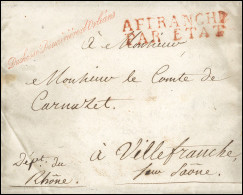 AFFRANCHI
PAR ETAT
à Monsieur
Monsieur le Comte de
Carnazet
à Villefranche,
sur Saône.
Dépt. du
Rhône.